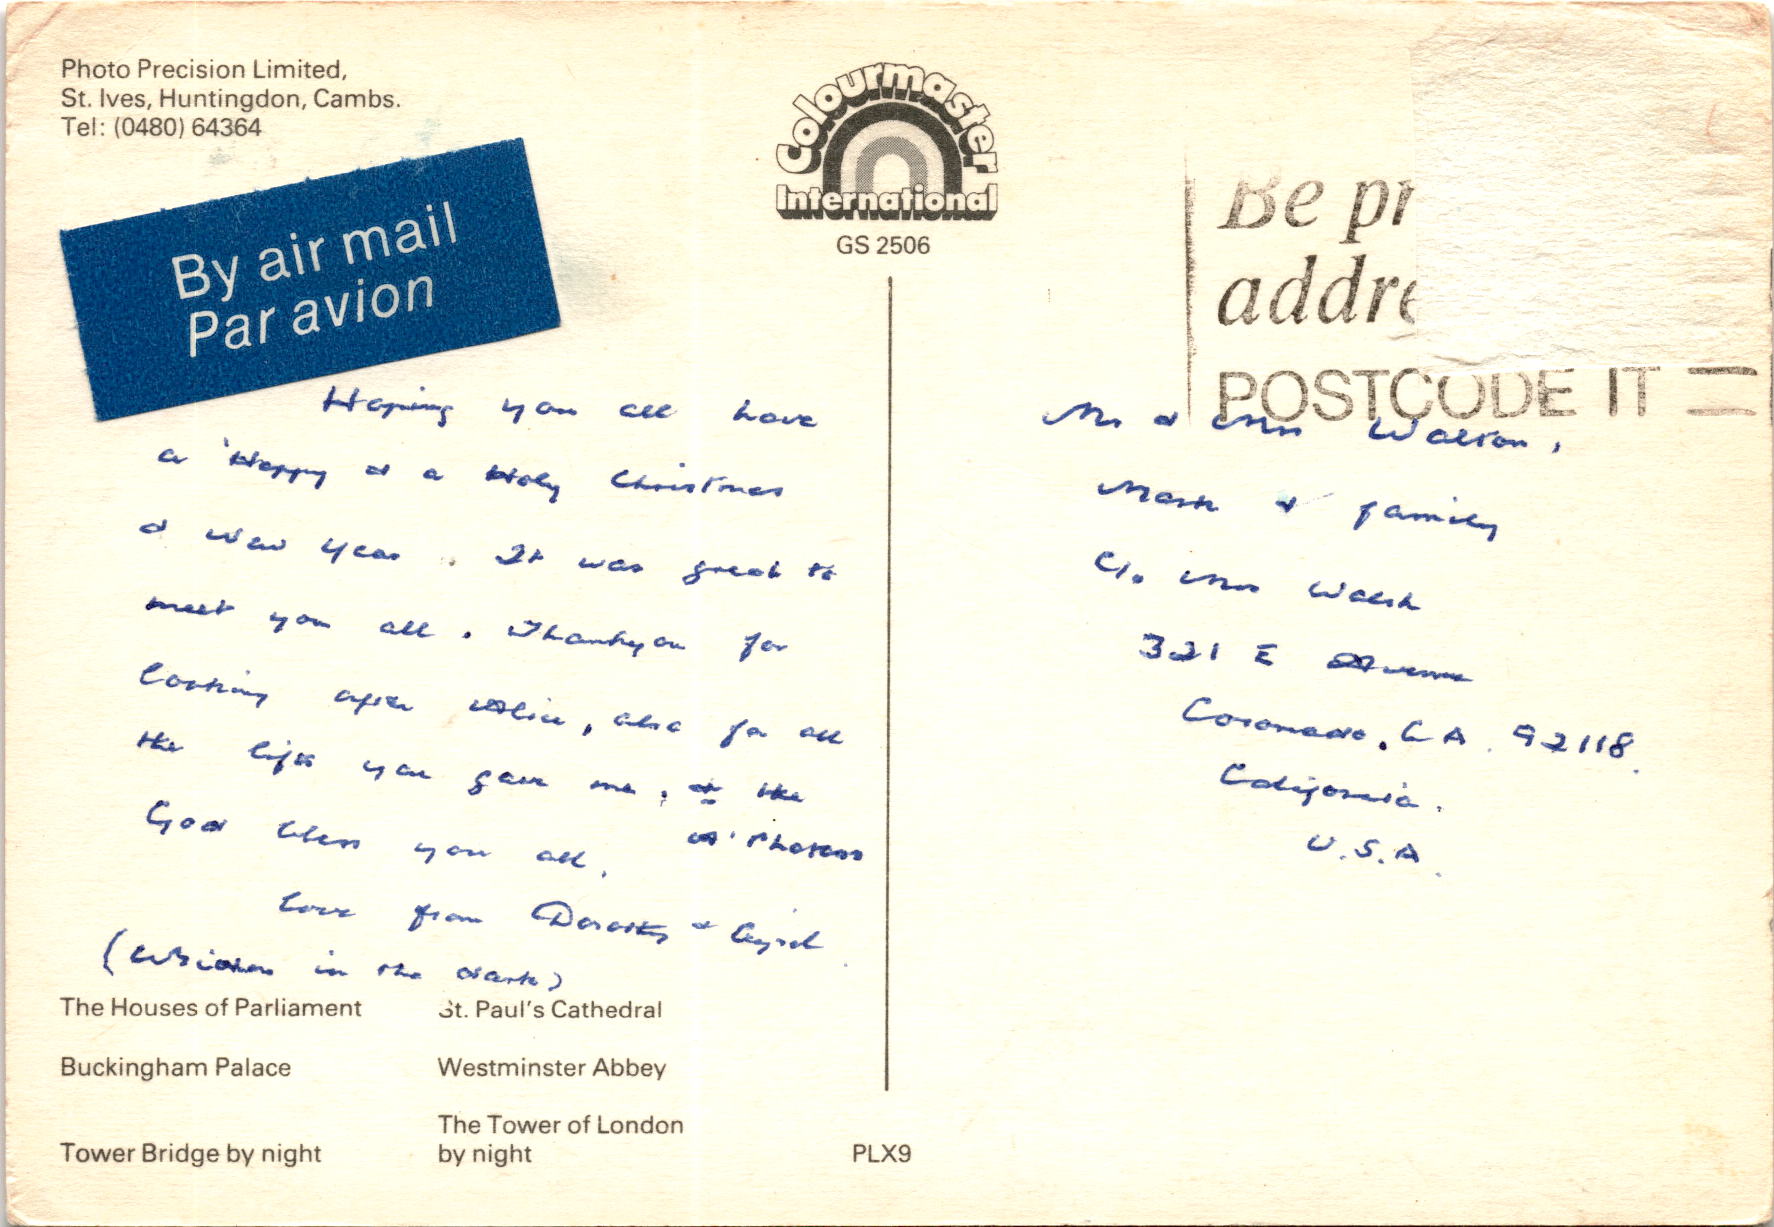 Photo Precision Limited,
St. Ives, Huntingdon, Cambs.
Tel: (0480) 64364
Colourmaster
International
GS 2506
By air mail
Par avion
Be pr
addre
POSTCODE IT
Hoping you all have
a 'Happy & a Holy Christmas
& New Year. It was great to
meet you all. Thankyou for
looking after Alice, also for all
the lifts you gave me, & the
God bless you all. Photos
love from Dorothy &
(Written in the dark)
Mr & Mrs Walton,
Mark & family
C/o Mrs Walsh
321 E Avenue
Coronado, CA. 92118.
California.
U.S.A.
The Houses of Parliament
St. Paul's Cathedral
Buckingham Palace
Westminster Abbey
Tower Bridge by night
The Tower of London
by night
PLX9